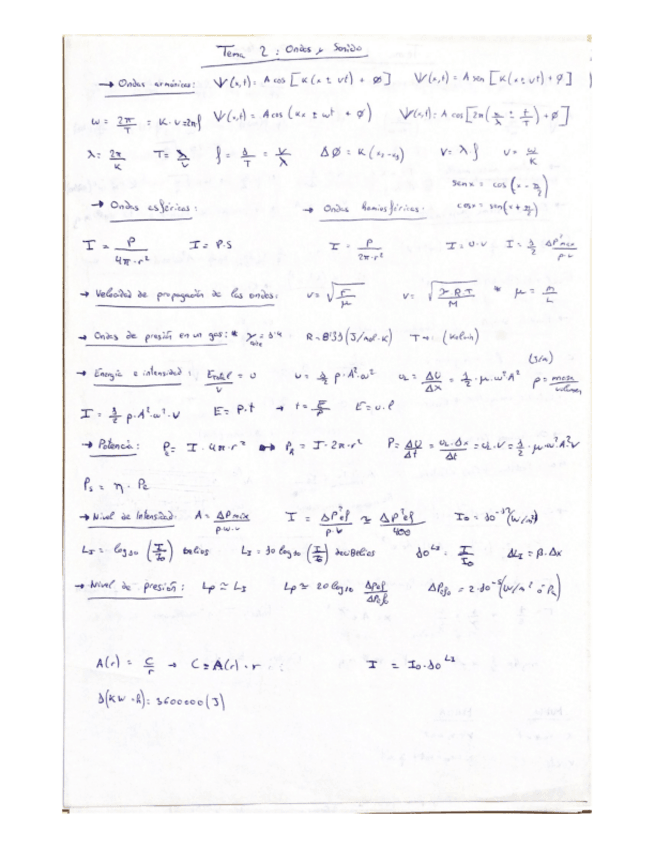 Tema 2: Ondas y Sonido
→ Ondas armónicas: Ψ(x,t)= A cos [K(x ± vt) + Ø] Ψ(x,t)= A sen [K(x ± vt) + Ø]
ω = 2π/T = K·v = 2πf Ψ(x,t)= A cos (Kx ± ωt + Ø) Ψ(x,t)= A cos [2π(x/λ ± t/T) + Ø]
λ = 2π/K T = λ/v f = 1/T = v/λ ΔØ = K(x₂-x₁) v = λf v = ω/K
senx = cos (x - π/2)
→ Ondas esféricas: → Ondas Hemisféricas: cosx = sen(x + π/2)
I = P/4π·r² I = P·S I = P/2π·r² I = υ·v I = 1/2 ΔP²max/ρ·v
→ Velocidad de propagación de las ondas: v = √F/μ v = √γRT/M * μ = m/L
→ Ondas de presión en un gas: * γaire = 1'4 R = 8'33 (J/mol·K) T → (Kelvin)
→ Energía e intensidad: Etotal/V = υ υ = 1/2 ρ·A²·ω² υL = ΔU/Δx = 1/2·μ·ω²A² (J/m) ρ = masa/volumen
I = 1/2 ρ·A²·ω²·v E = P·t → t = E/P E = υ·l
→ Potencia: Pe = I·4π·r² ↔ PA = I·2π·r² P = ΔU/Δt = υL·Δx/Δt = υL·v = 1/2·μ·ω²A²v
Ps = η·Pe
→ Nivel de Intensidad: A = ΔPmáx/ρ·ω·v I = ΔP²ef/ρ·v ≃ ΔP²ef/400 I₀ = 10⁻¹²(W/m²)
LI = log10 (I/I₀) belios LI = 10 log10 (I/I₀) decibelios 10^LI = I/I₀ ΔLI = β·Δx
→ Nivel de presión: Lp ≃ LI Lp ≃ 20 log10 ΔPef/ΔPef₀ ΔPef₀ = 2·10⁻⁵(W/m² ó Pa)
A(r) = C/r → C = A(r)·r I = I₀·10^LI
1(KW·h) = 3600000(J)